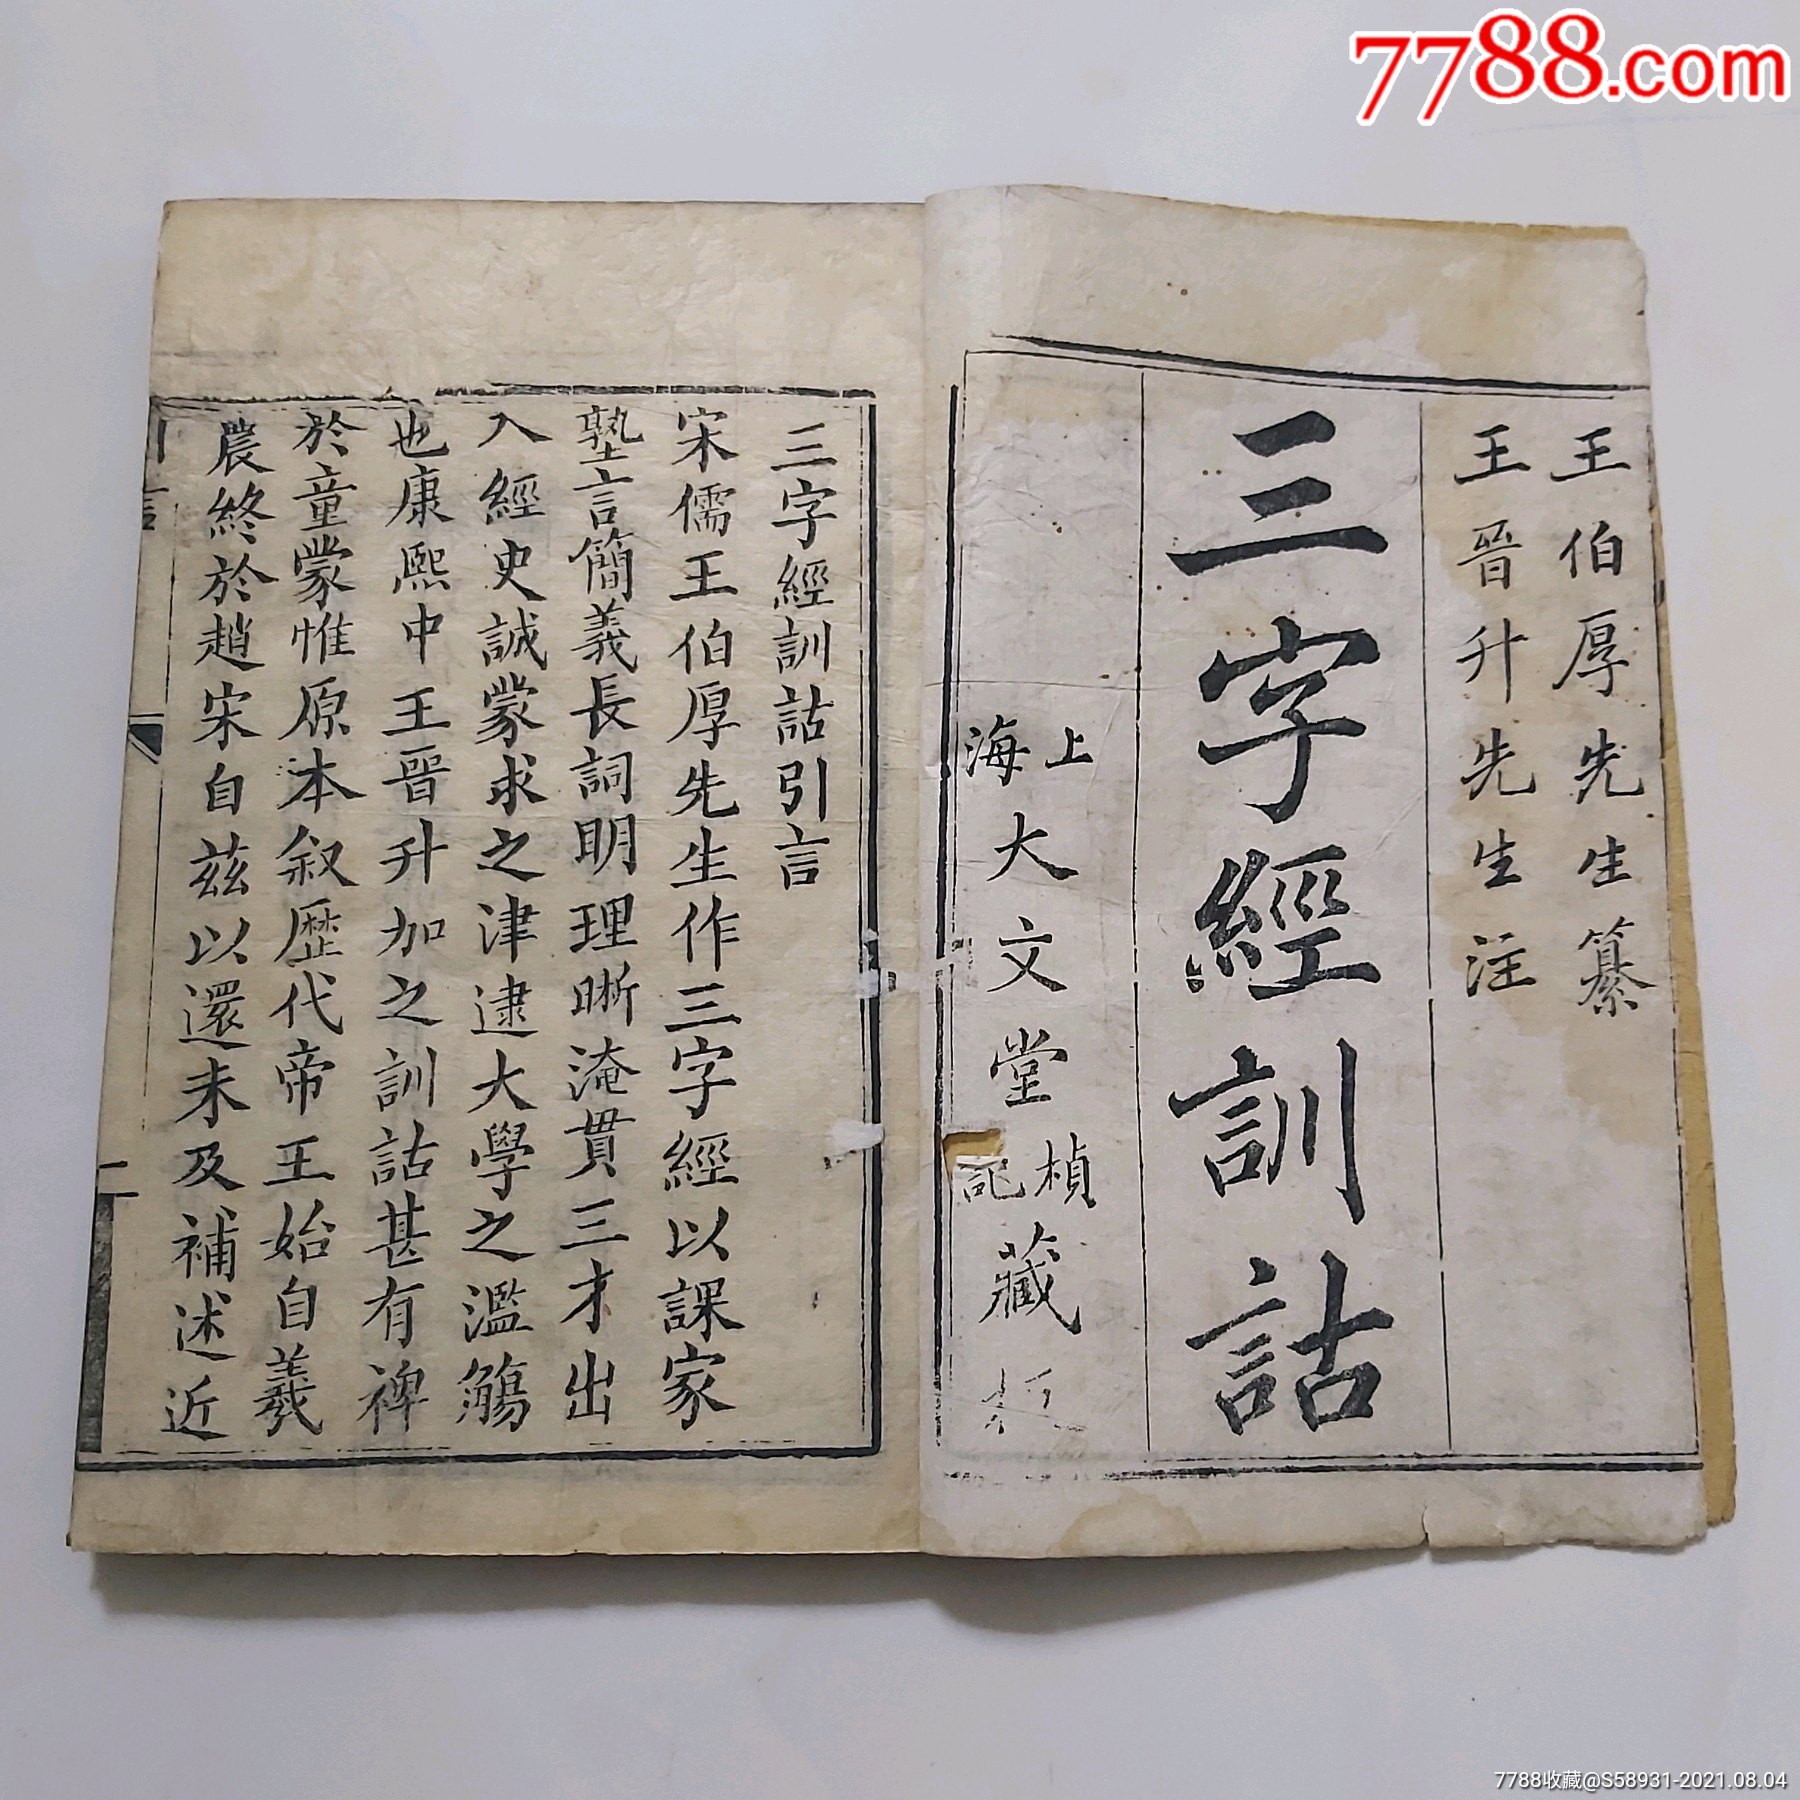 7788.com
王伯厚先生纂
王晉升先生注
三字經訓詁
上海大文堂楨記藏板
三字經訓詁引言
宋儒王伯厚先生作三字經以課家
塾言簡義長詞明理晰淹貫三才出
入經史誠蒙求之津逮大學之濫觴
也康熙中王晉升加之訓詁甚有裨
於童蒙惟原本叙歷代帝王始自羲
農終於趙宋自茲以還未及補述近
引言
一
7788收藏@S58931-2021.08.04